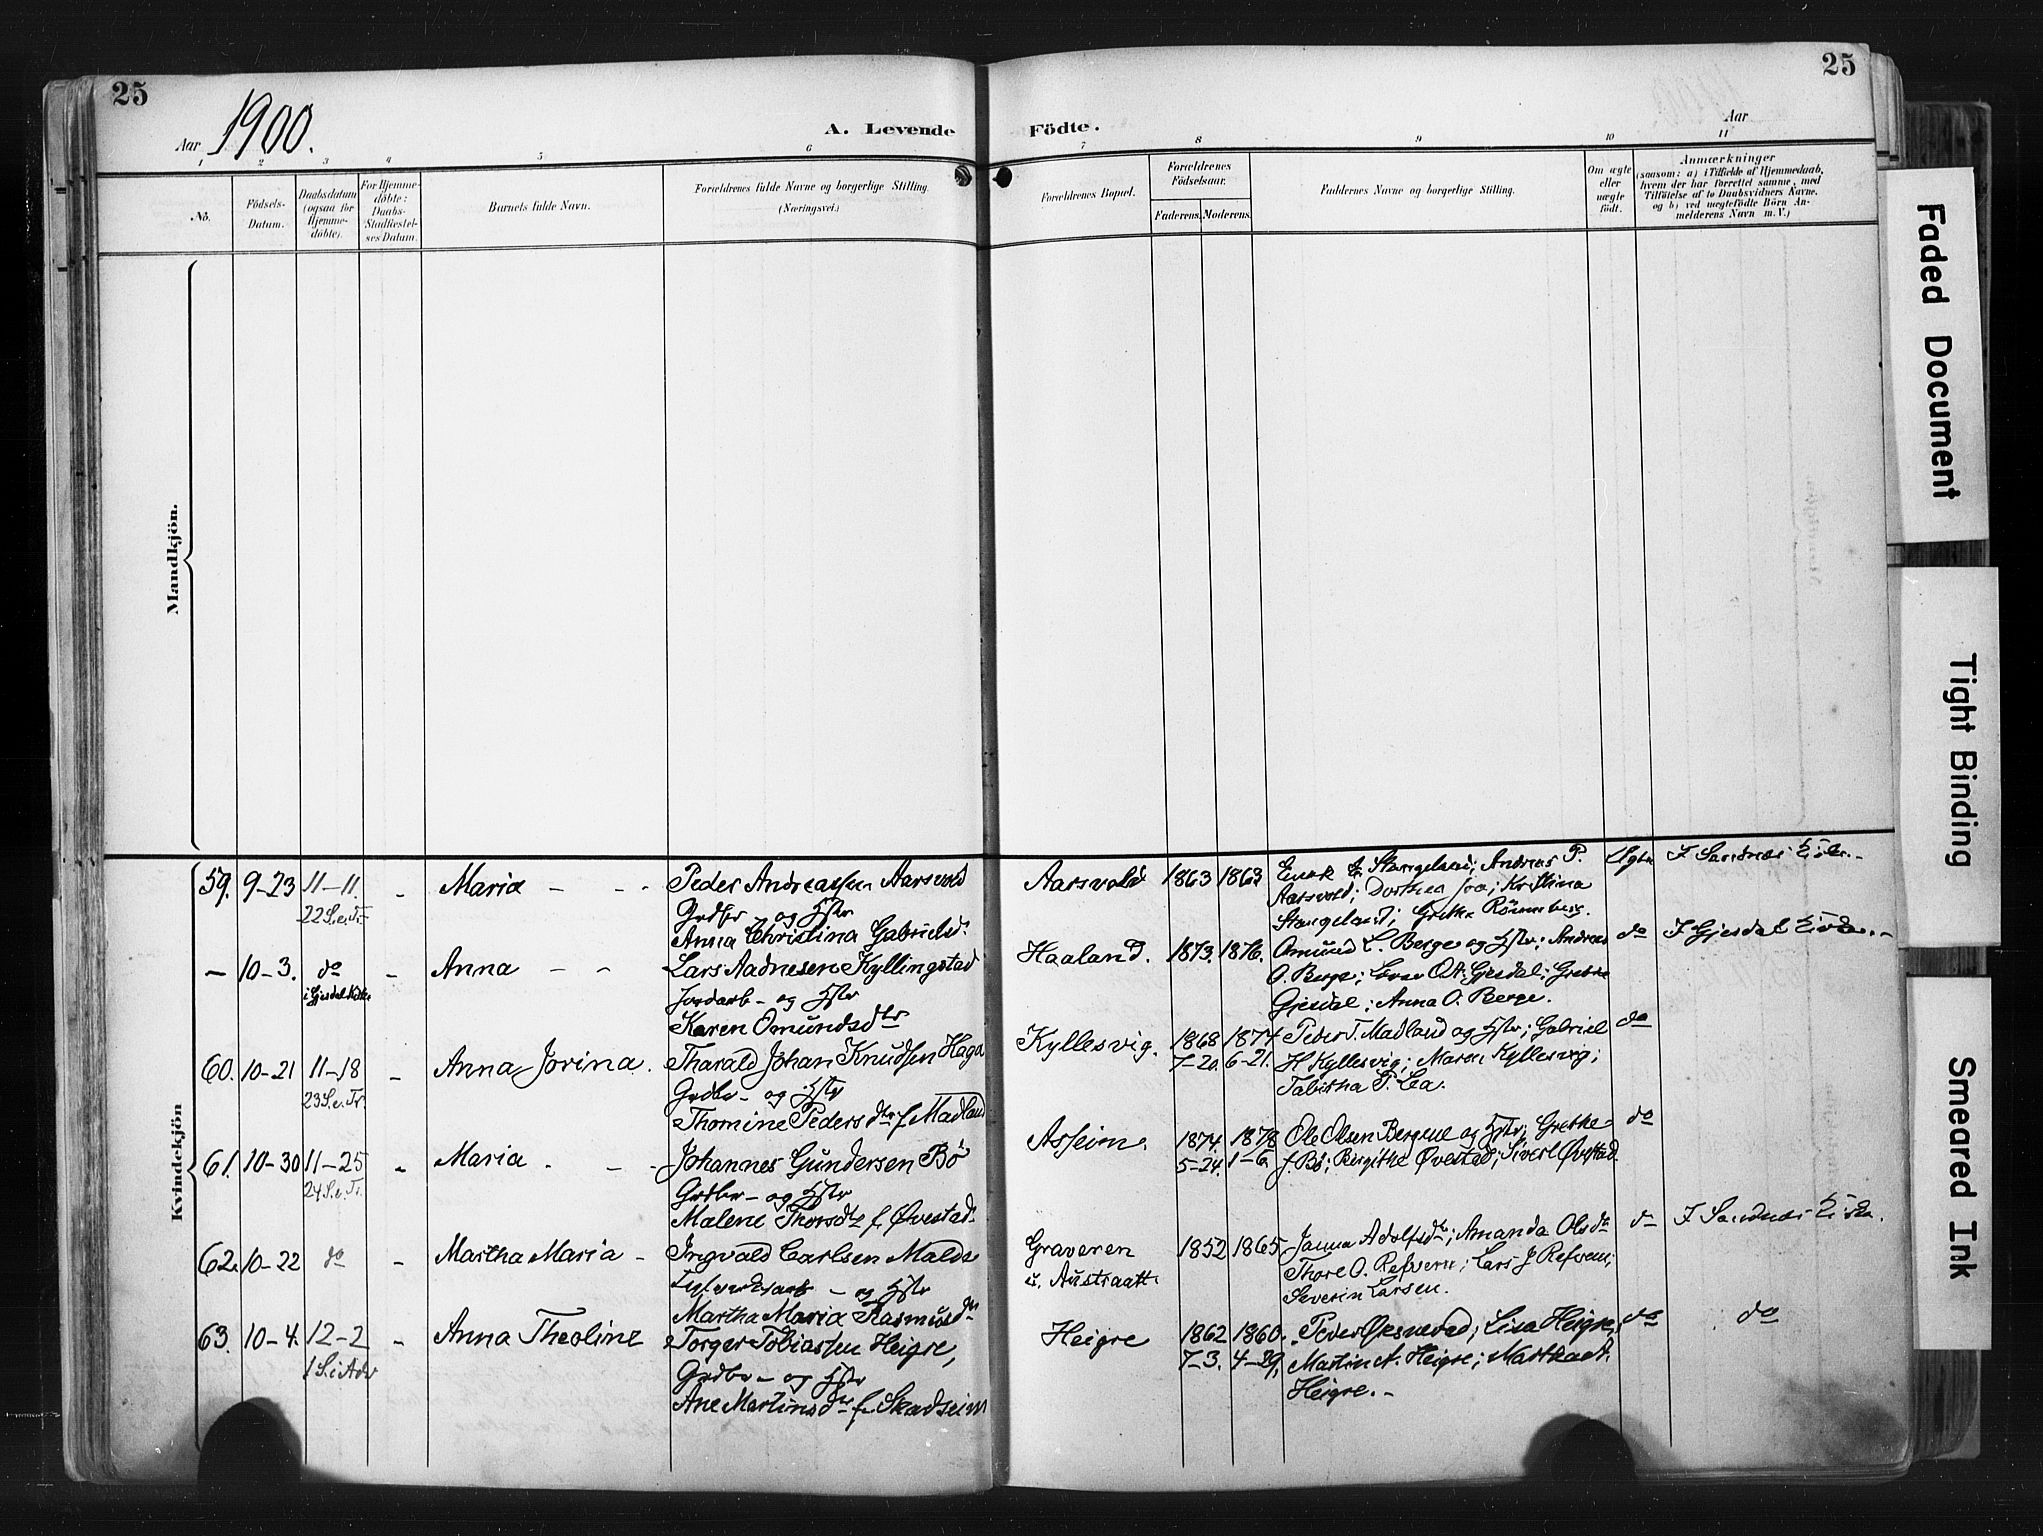 25
25
Aar 1900.
A. Levende Födte.
Aar
1 2 3 4 5 6 7 8 9 10 11
No.
Födsels-
Datum.
Daabsdatum
(ogsaa for
Hjemme-
döbte).
For Hjemme-
döbte:
Daabs-
Stadfæstel-
ses Datum.
Barnets fulde Navn.
Forældrenes fulde Navne og borgerlige Stilling.
(Næringsvei.)
Forældrenes Bopæl.
Forældrenes
Födselsaar.
Faderens. Moderens.
Faddernes Navne og borgerlige Stilling.
Om ægte
eller
uægte
födt.
Anmærkninger
(saasom: a) i Tilfælde af Hjemmedaab,
hvem der har forrettet samme, med
Tilföielse af to Daabsvidners Navne.
og b) ved uægtefödte Börn An-
melderens Navn m. V.)
Mandkjön.
Kvindekjön
59. 9-23 11-11. - Maria - - - Peder Andreassen Aarsvold
22 S.e.Tr. Grdbr og Hstr
Anna Christina Gabrielsdr
Aarsvold 1863 1863 Stangeland; Andreas P.
Aarsvold; Dorthea; Kristina
Stangeland; Grethe
Ægte I Sandnæs Kirke.-
- 10-3. do - Anna - - Lars Aadnesen Kyllingstad
i Gjesdal Kirke Jordarb- og Hstr
Karen Omundsdtr
Haaland. 1873. 1876. Omund L. Berge og Hstr; Andreas
O. Berge; Gjesdal; Grethe
Gjesdal; Anna O. Berge.
do I Gjesdal Kirke.-
60. 10-21 11-18 - Anna Jorina. Tharald Johan Knudsen Haga
23 S.e.Tr. Grdbr- og Hstr
Thomine Pedersdtr f. Madland
Kyllesvig. 1868 1874 Peder T. Madland og Hstr; Gabriel
7-20. 6-21. H Kyllesvig; Maren Kyllesvig;
Tabitha P. Lea.
do
61. 10-30 11-25 - Maria - - - Johannes Gundersen Bø
24 S.e.Tr. Grdbr- og Hstr
Malene Thorsdtr f. Øvestad
Asheim. 1874. 1878 Ole Olsen Bergene og Hstr; Grethe
5-24. 1-6. J. Bø; Bergithe Øvestad; Sivert Øvestad.
do
62. 10-22 do - Martha Maria - Ingvald Carlsen Malde
- og Hstr
Martha Maria Rasmusdr
Graveren 1852 1865 Janna Adolfsdr; Amanda Olsdr
u. Austraatt Thore O. Refvem; Lars J Refvem;
Severin Larsen.
do I Sandnæs Kirke.
63. 10-4. 12-2 - Anna Theoline Torger Tobiassen Heigre,
1 S. i Adv Grdbr- og Hstr
Ane Martinsdtr f. Skadseim
Heigre 1862 1860. Peder Øksnevad; Lisa Heigre;
7-3. 4-29, Martin A. Heigre; Martha A.
Heigre.-
do do
Faded Document
Tight Binding
Smeared Ink